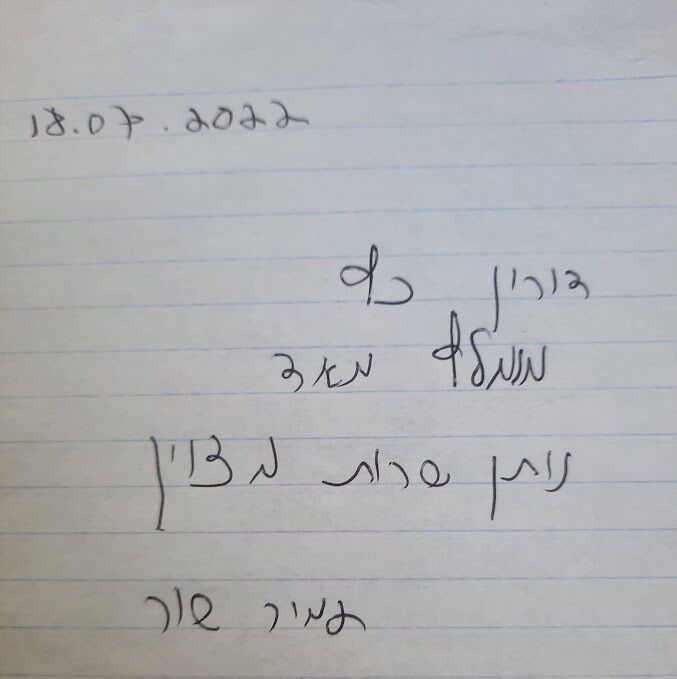 18.07.2022
דורון כץ
מומלץ מאד
נותן שרות מצוין
תמיר שור